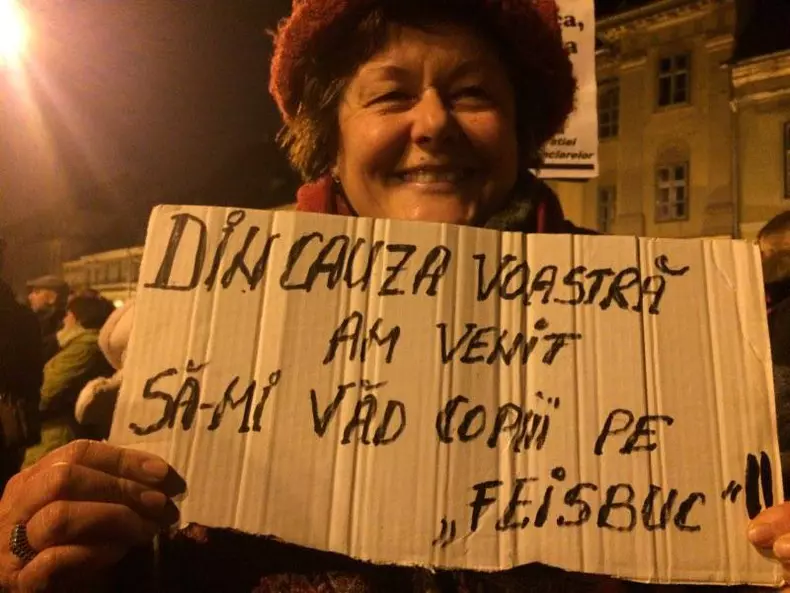 a,
a
ției
nciarelor
DIN CAUZA VOASTRĂ
AM VENIT
SĂ-MI VĂD COPIII PE
„FEISBUC“!!